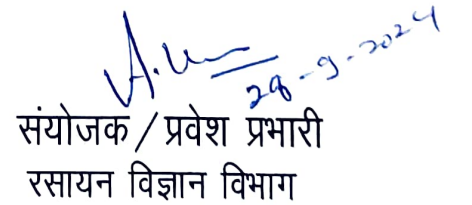 28-9-2024
संयोजक / प्रवेश प्रभारी
रसायन विज्ञान विभाग